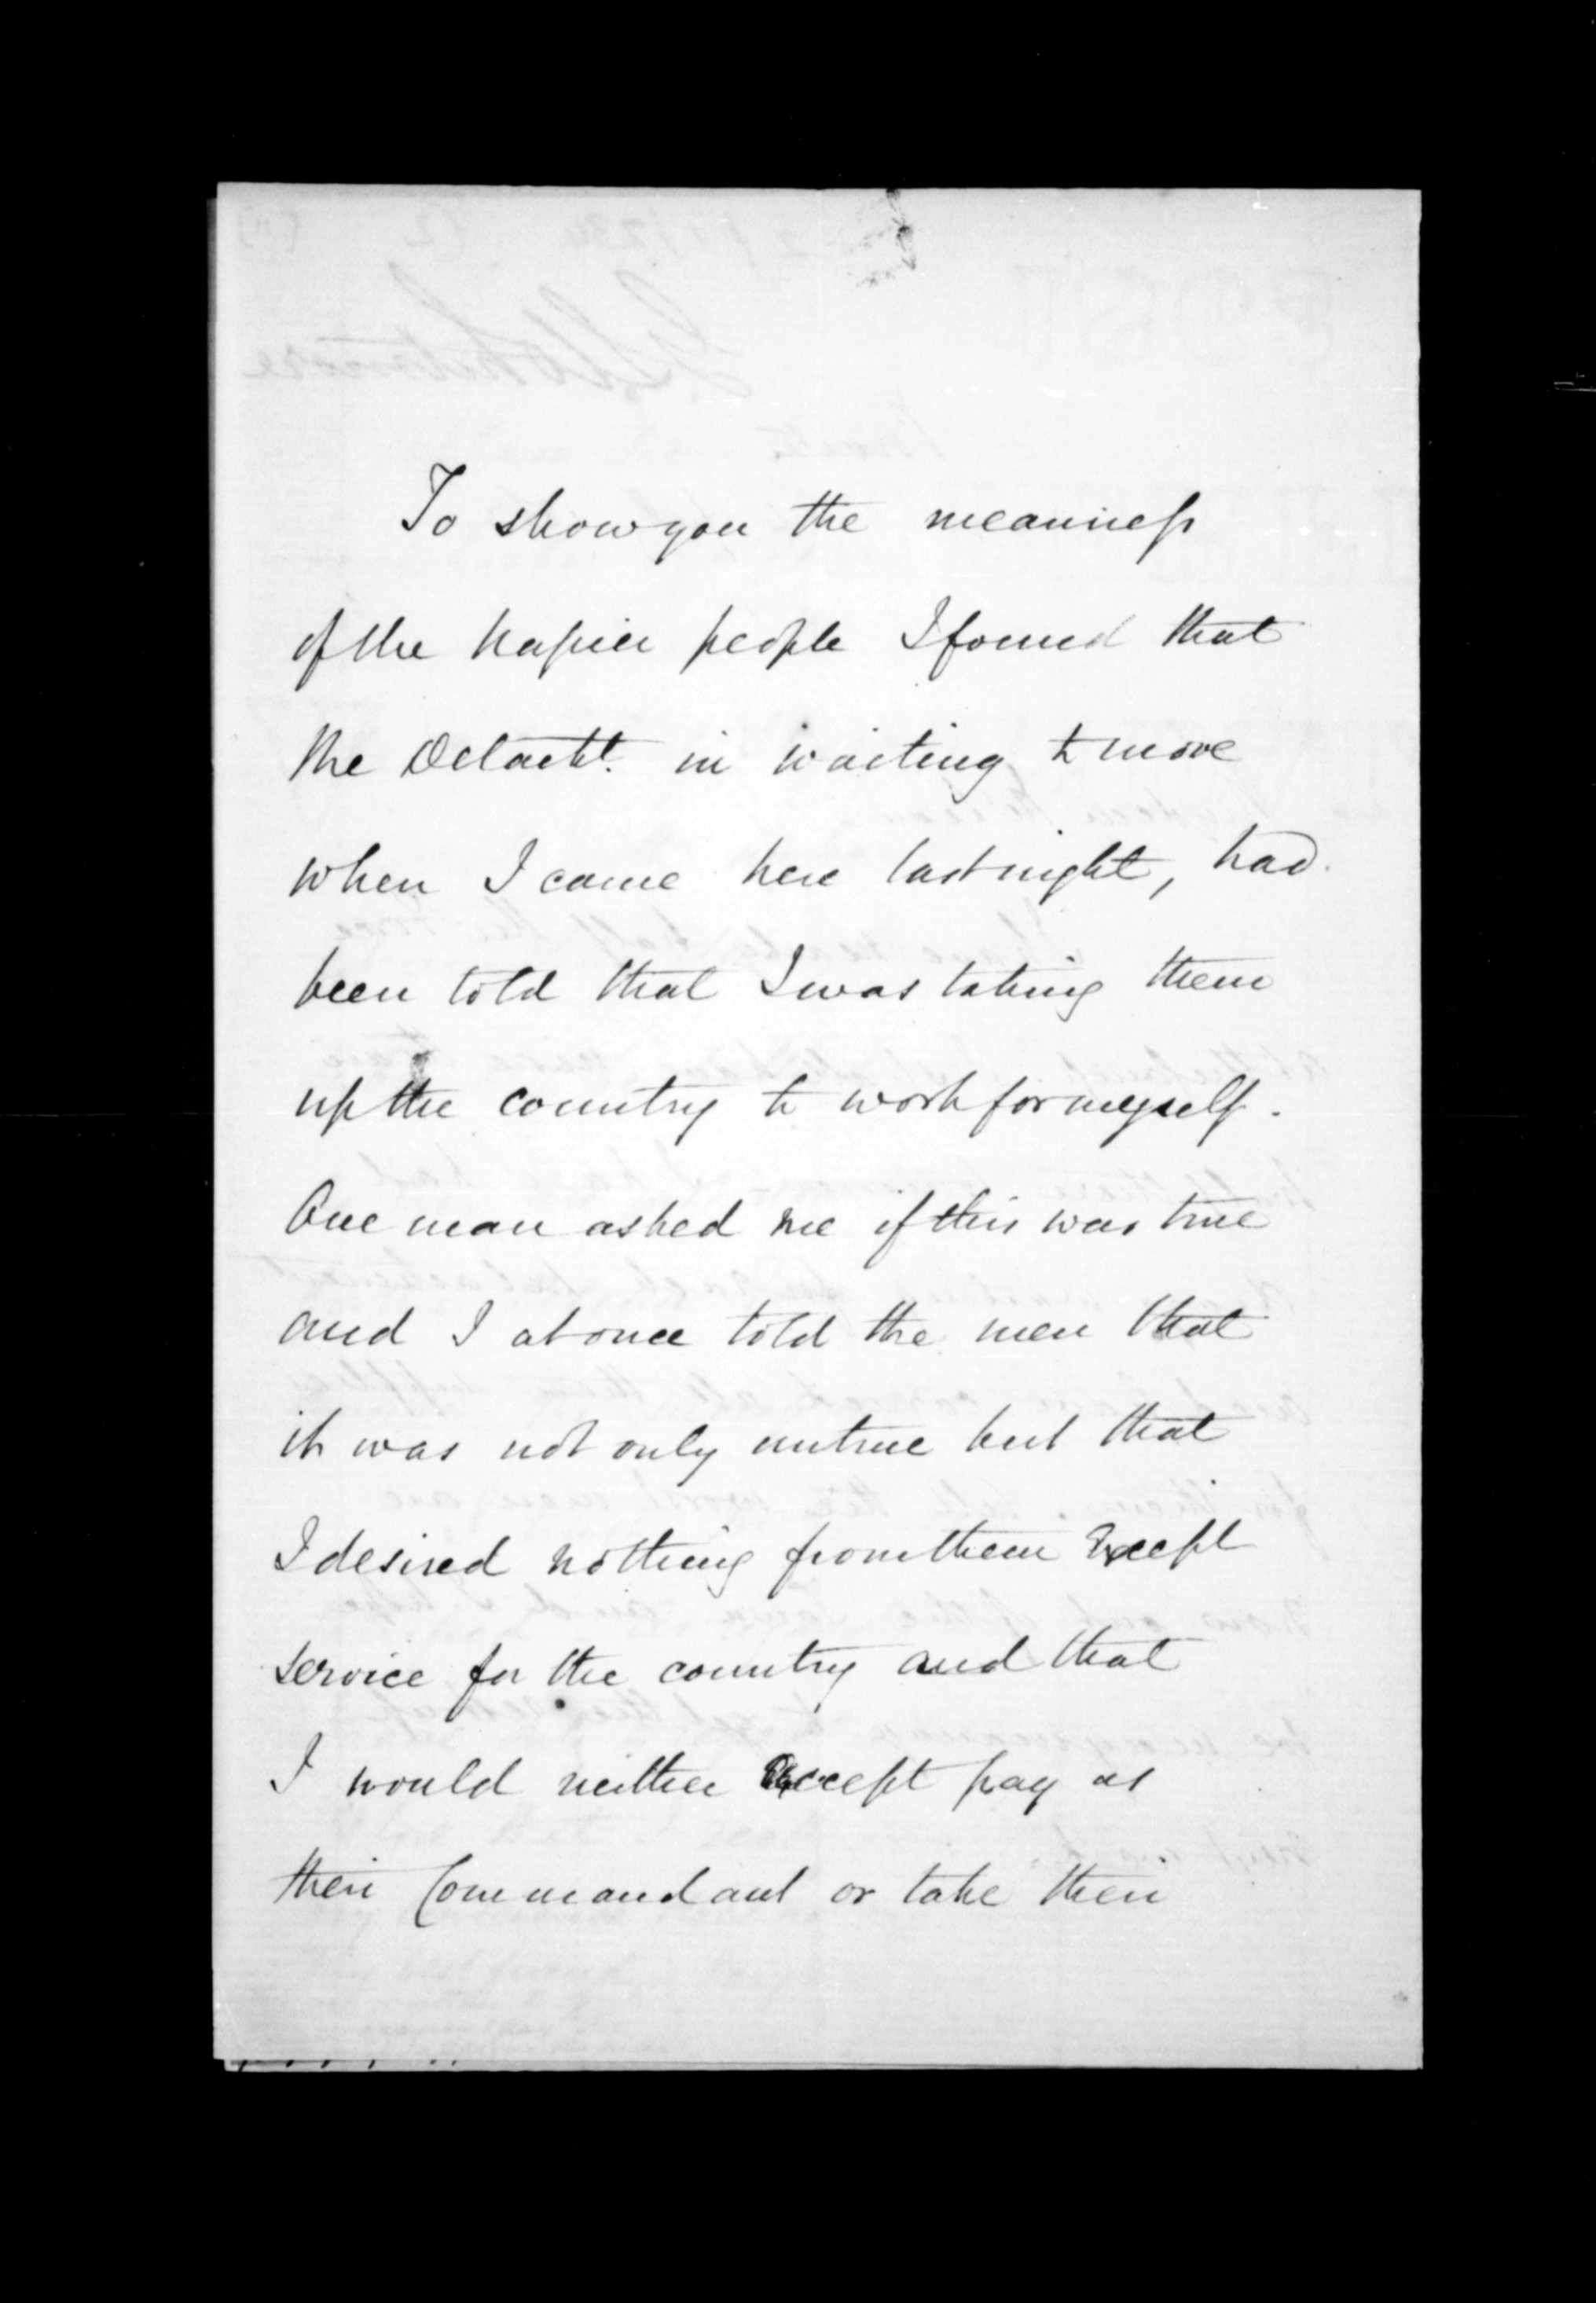 To show you the meanness
of the Napier people I found that
the Detacht. in waiting to move
when I came here last night, had
been told that I was taking them
up the country to work for myself.
One man asked me if this was true
and I at once told the men that
it was not only untrue but that
I desired nothing from them except
service for the country and that
I would neither accept pay as
their Commandant or take their